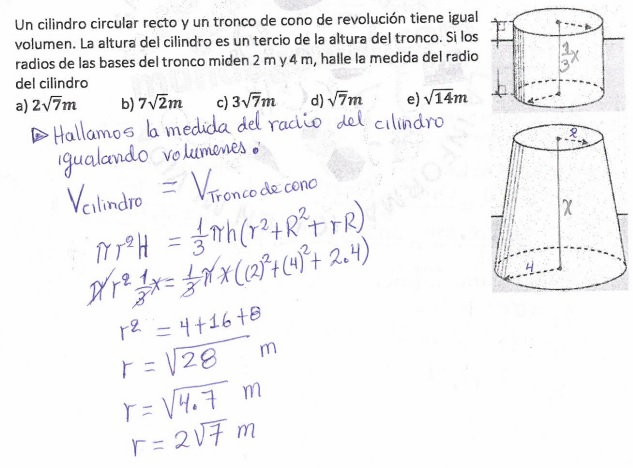 Un cilindro circular recto y un tronco de cono de revolución tiene igual
volumen. La altura del cilindro es un tercio de la altura del tronco. Si los
radios de las bases del tronco miden 2 m y 4 m, halle la medida del radio
del cilindro
a) 2√7m b) 7√2m c) 3√7m d) √7m e) √14m
Hallamos la medida del radio del cilindro
igualando volumenes.
Vcilindro = VTronco de cono
πr²H = 1/3 πh(r²+R²+rR)
πr² 1/3 x = 1/3 π x((2)²+(4)²+2.4)
r² = 4+16+8
r = √28 m
r = √4.7 m
r = 2√7 m
1/3 x
2
x
4